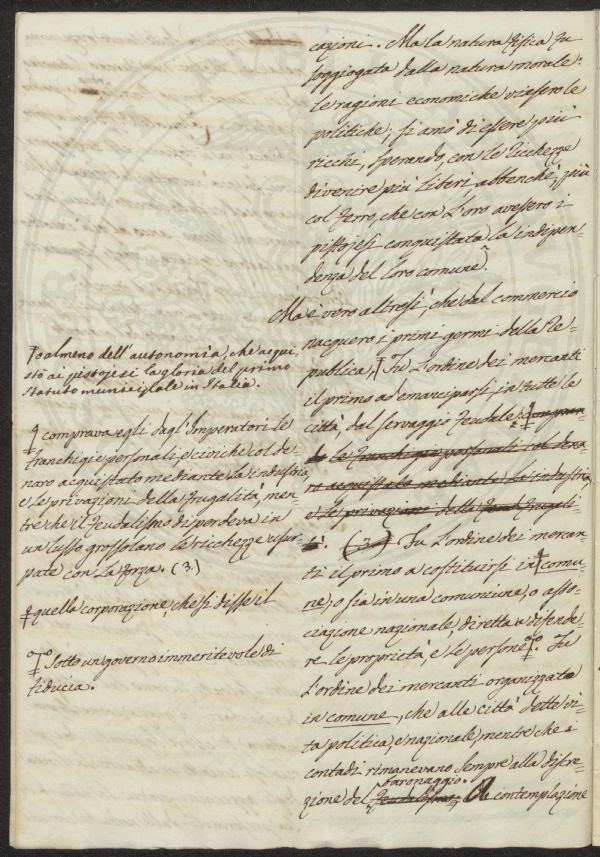 cazioni. Ma la natura fisica fu
soggiogata dalla natura morale:
le ragioni economiche vinsero le
politiche; si amò di essere più
ricchi, sperando, con le ricchezze
divenire più liberi abbenché, più
col ferro, che con l'oro avessero i
pistojesi conquistata la indipen-
denza del loro comune.
Ma è vero altresì, che dal commercio
nacquero i primi germi della Re-
pubblica, Fu l'ordine dei mercanti
il primo ad emanciparsi in tutte le
città dal servaggio feudale:
le franchigie personali col dena-
ro acquistato mediante la industria,
e le privazioni della frugali-
tà. (3) Fu l'ordine dei mercan-
ti il primo a costituirsi in comu-
ne, o sia in una comunione, o asso-
ciazione nazionale, diretta a difende-
re le proprietà, e le persone. Fu
l'ordine dei mercanti organizzato
in comune, che alle città dette vi-
ta politica, e nazionale, mentre che i
contadi rimanevano sempre alla discre-
baronaggio.
zione del feudalismo. A contemplazione
o almeno dell'autonomia, che acqui-
stò ai pistojesi la gloria del primo
statuto municipale in Italia.
comprava egli dagl'Imperatori le
franchigie personali, e civiche col de-
naro acquistato mediante la industria,
e le privazioni della frugalità, men-
tre che il feudalismo disperdeva in
un lusso grossolano le ricchezze usur-
pate con la forza. (3.)
quella corporazione, che si disse il
Sotto un governo immeritevole di
fiducia.